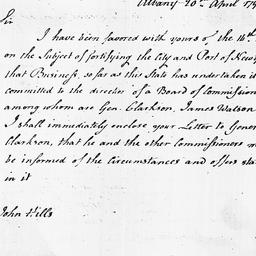 Albany 20th April 179
Sir
I have been favored with yours of the 16th
on the Subject of fortifying the City and Port of New
that Business, so far as this State has undertaken it
committed to the direction of a Board of Commission
among whom are Gen. Clarkson, James Watson
I shall immediately enclose your Letter to Gener
Clarkson, that he and the other Commissioners
be informed of the Circumstances and offers sta
in it
John Hills